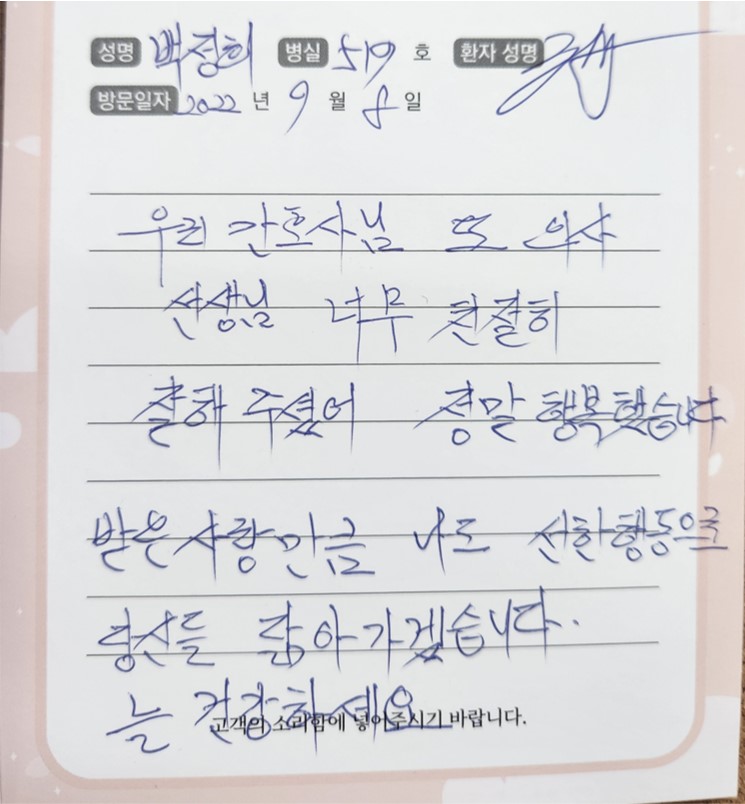 성명 백정희 병실 519 호 환자 성명
방문일자 2022 년 9 월 8 일
우리 간호사님 또 의사
선생님 너무 친절히
잘해 주셨어 정말 행복했습니다
받은 사랑만큼 나도 선한행동으로
당신들 닮아가겠습니다.
늘 건강하세요
고객의 소리함에 넣어주시기 바랍니다.